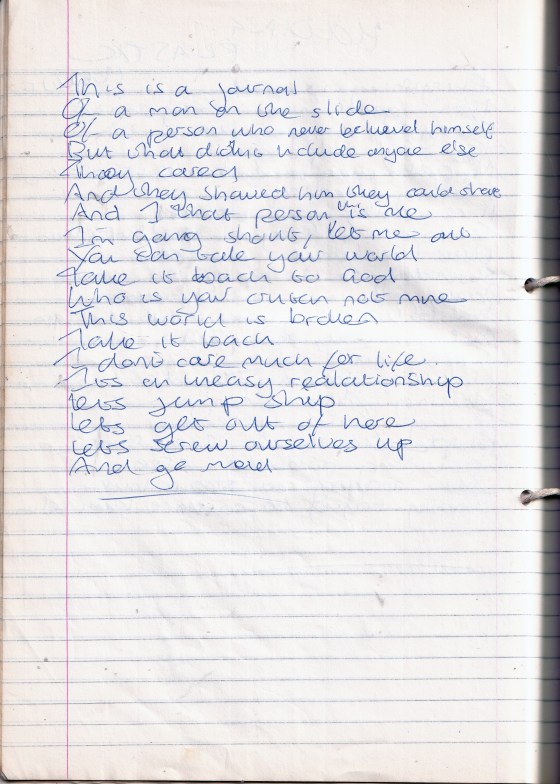 This is a journal
Of a man on the slide
Of a person who never believed himself
But that didnt include anyone else
They cared
And they showed him they could share
And I that person this is me
Im going shout, let me out
You can take your world
Take it back to God
Who is your crutch not mine
This world is broken
Take it back
I dont care much for life.
Its an uneasy realationship
Lets jump ship
Lets get out of here
Lets screw ourselves up
And go mad